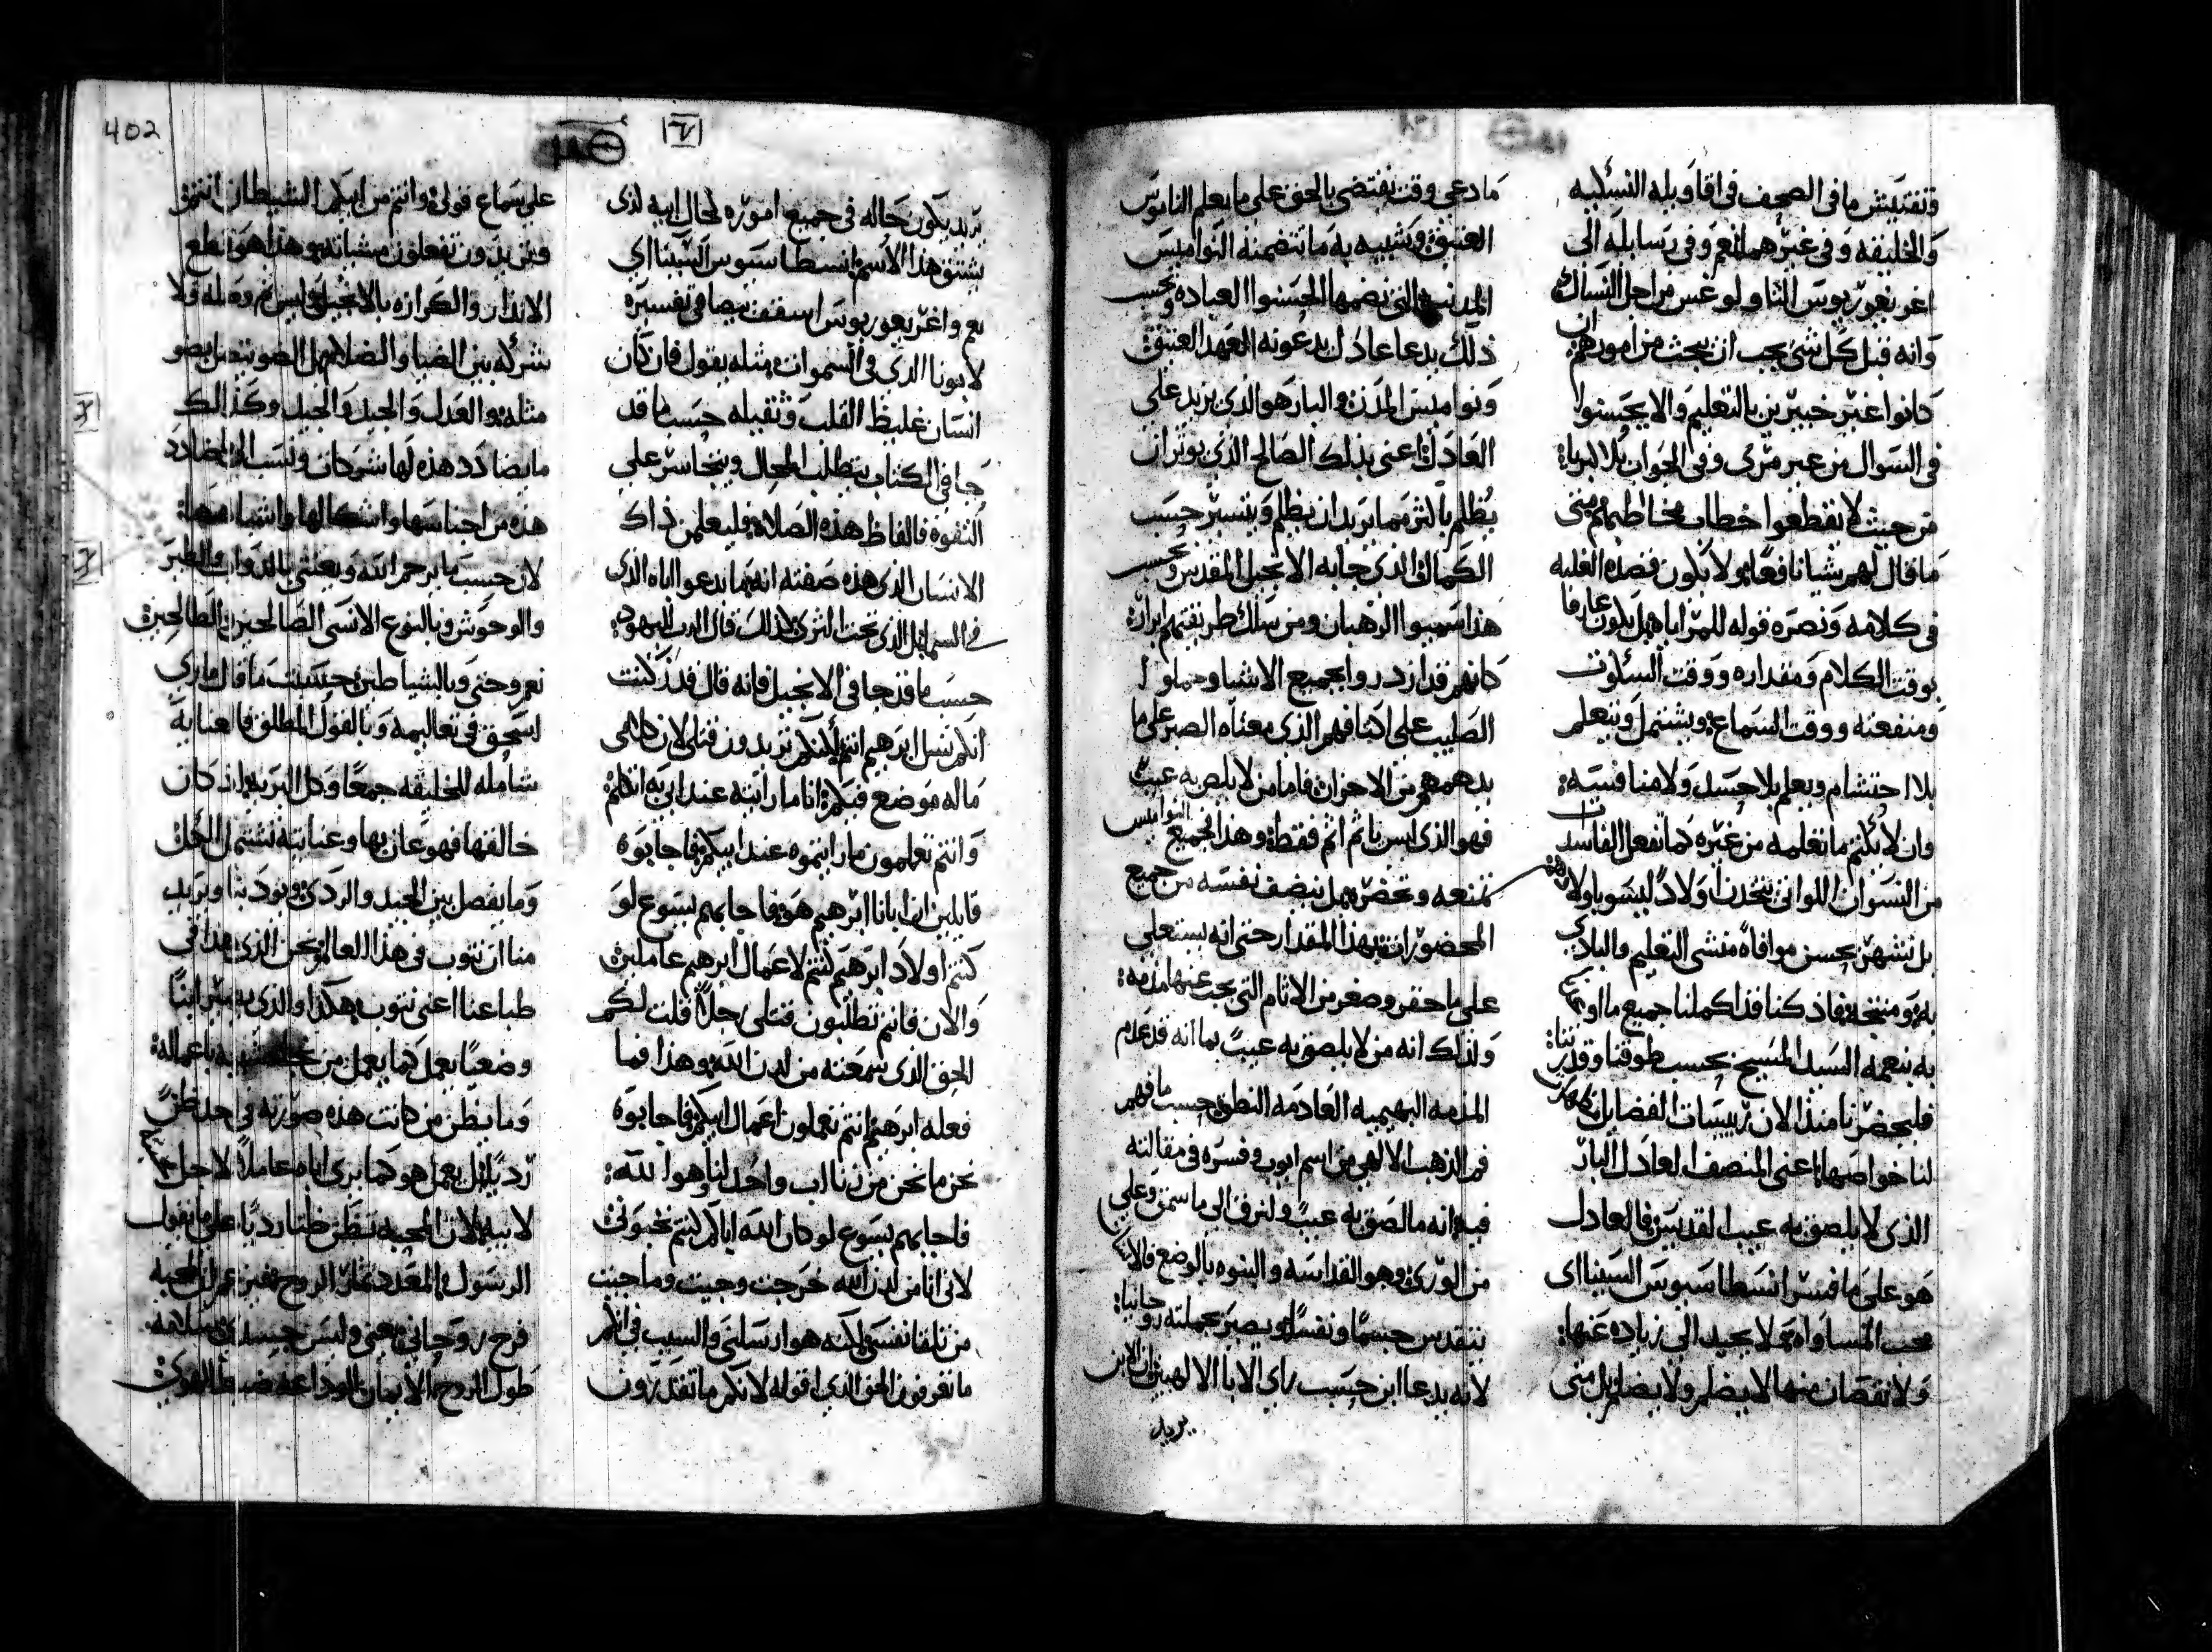 وتفتيش ما في الصحف في اقاويله النسكيه
والخليقه وفي غيرهما نعم وفي رسايله الى
اغريغوريوس الثاولوغس من اجل النساك
وانه قبل كل شي يجب ان يبحث من امورهم ان
كانوا غير خبيرين بالتعليم والا يحسنوا
في السوال من غير مرى وفي الجواب بلا كبريا
من حيث لا يقطعوا خطاب مخاطبهم متى
ما قال لهم شيا نافعًا ولا يكون قصده الغلبه
في كلامه ونصره قوله للمرايا هل يكون عارفا
بوقت الكلام ومقداره ووقت السكوت
ومنفعته ووقت السماع ويشتمل ويتعلم
بلا احتشام ويعلم بلا حسد ولا منافسه
وان لا يكتم ما تعلمه من غيره كما تفعل الفاسدات
من النسوان اللواتي يتخذن اولادًا ليسوا باولادهن
بل يشهر بحسن موافاه منشى التعليم والبادي
به ومنتجه فاذ كنا قد اكملنا جميع ما
به بنعمه السيد المسيح بحسب طوقنا وقدرتنا
فليحضرنا منذ الان رييسات الفضايل
لنا خواصها اعني المنصف العادل البار
الذي لا يلصق به عيب القديس فالعادل
هو على ما فسر انسطاسيوس السيناءي
محب المساواه لا يحيد الى زياده عنها
ولا نقصان منها لا يظلم ولا يضلم بل متى
ما دعي وقت يقتضي بالحق على ما يعلم الناموس
العتيق وتشبيه به ما تتضمنه النواميس
المدنيه التي تضمها الحسنوا العباده وبحسب
ذلك يدعا عادل يدعونه العهد العتيق
ونواميس المدن والبار هو الذي يزيد على
العادل اعني بذلك الصالح الذي يوثر ان
يُظلم باكثر مما يريد ان يظلم ويتسير حسب
الكمال الذي جا به الانجيل المقدس وبحسب
هذا سميوا الرهبان ومن سلك طريقتهم ابرار
كانهم قد ازدروا بجميع الاشيا وحملوا
الصليب على اكتافهم الذي معناه الصبر على ما
يدهمهم من الاحزان فاما من لا يلصق به عيب
فهو الذي ليس باثم اثم فقط وهذا جميع النواميس
تمنعه وتحضره بل ينضف نفسه من جميع
المحضورات بهذا المقدار حتى انه يستعلي
على ما حقر وصغر من الاثام التي يجب عنها مذمه
ولذلك انه من لا يلصق به عيب بما انه قد عدم
المذمه البهيميه العادمه النطق حسب ما فهم
فم الذهب الالهي من اسم ايوب وفسره في مقالته
فيه انه ما لصق به عيب ولنرق الى ما سمن وعلى
من الورى وهو القداسه والبنوه بالوضع فالان
نتقدس جسمًا ونفسًا ويصير بجملته روحانيا
لانه يدعا ابن حسب راي الابا الالهيين ان الابن
يريد
402
يريد يكون حاله في جميع اموره كحال ابيه الذي
يشتق هذا الاسم انسطاسيوس السيناءي
نعم واغريغوريوس اسقف نيصا في تفسيره
لابونا الذي في السموات بمثله يقول فان كان
انسان غليظ القلب وثقيله حسب ما قد
جا في الكتاب يتطلب المحال ويتجاسر على
التفوه فالفاظ هذه الصلاه فليعلمن ذاك
الانسان الذي هذه صفته انه ما يدعوا اباه الذي
في السما بل الذي تحت الثرى لذلك قال الرب لليهود
حسب ما قد جا في الانجيل فانه قال قد كنت
انكم نسل ابرهيم انتم لكنكم تريدون قتلي لان كلامي
ما له موضع فيكم انا ما رايته عند ابي به اتكلم
وانتم تعلمون ما رايتموه عند ابيكم فاجابوه
قايلين ان ابانا ابرهيم هو فاجابهم يسوع لو
كنتم اولاد ابرهيم كنتم لاعمال ابرهيم عاملين
والان فانتم تطلبون قتلي رجلًا قلت لكم
الحق الذي سمعته من لدن الله وهذا فما
فعله ابرهيم انتم تعملون اعمال ابيكم فاجابوه
نحن ما نحن من زنا اب واحد لنا وهوا الله
فاجابهم يسوع لو كان الله اباكم كنتم تحبوني
لاني انا من لدن الله خرجت وجيت وما جيت
من تلقا نفسي لكنه هو ارسلني والسبب في انكم
ما تعرفون الحق الذي اقوله لانكم ما تقدرون
على سماع قولي وانتم من ابيكم الشيطان انتم
وتريدون تفعلون مشياته وهذا هو نطع
الاندار والكرازه بالانجيل ليس ثم وصله ولا
شركه بين الضيا والضلام بل الضو يتصل بضو
مثله والعدل والجيد والجيد وكذلك
ما يضادد هذه لها شركات ونسب الى المضادد
هذه من اجناسها واشكالها واشباهها
لان حسب ما يرحم الله ويعتني بالدواب والطير
والوحوش وبالنوع الانسي الصالحين والطالحين
نعم وحتى وبالشياطين حسبت ما قال ماري
اسحق في تعاليمه وبالقول المطلق فالعنايه
شامله للخليقه جمعًا وكل البريه اذ كان
خالقها فهو عان بها وعنايته تشتمل الكل
وما يفصل بين الجيد والردي ويود بنا ويريد
منا ان نتوب في هذا العالم نحن الذي هذا في
طباعنا اعني نتوب هكذا والذي به ميز ابنًا
وضعيًا يعمل كما يعمل من باعماله
وما يظن من كانت هذه صورته في احد ظن
ردي بل يعمل هو كما يرى اباه عاملًا لاجل
لابيه لان المحبه تظن ظنا رديًا على ما يقول
الرسول المعدد ثمار الروح المحبه
فرح روحاني معنى وليس جسداني سلامه
طول الروح الايمان الوداعه ضبط الهوى